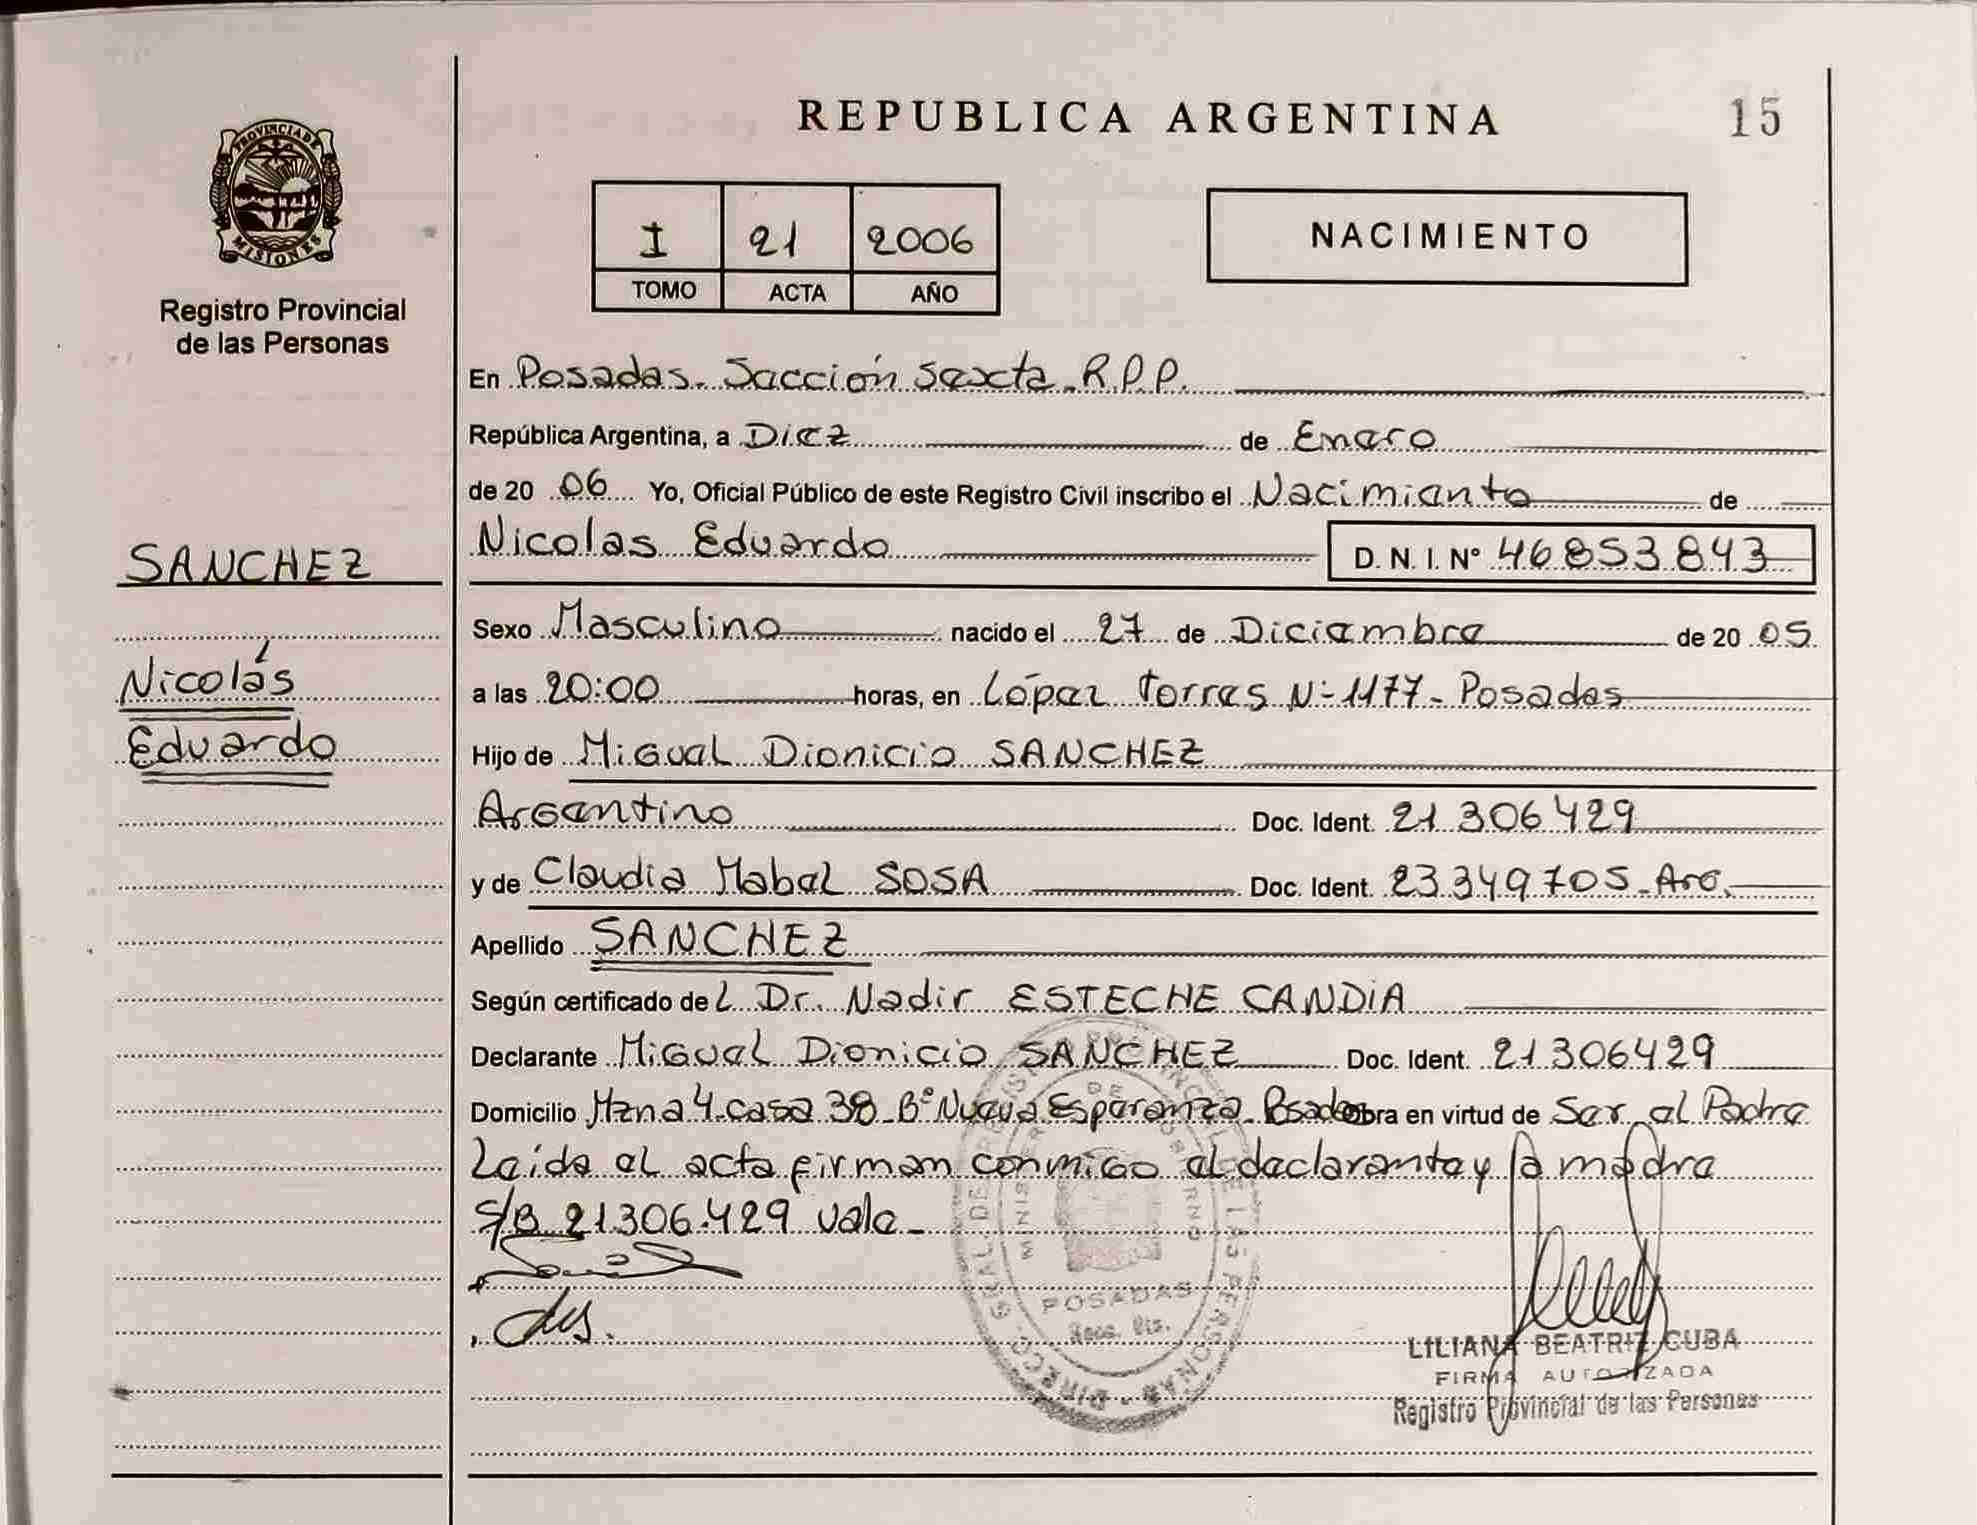 REPUBLICA ARGENTINA
15
PROVINCIA DE
MISIONES
Registro Provincial
de las Personas
I 21 2006
TOMO ACTA AÑO
NACIMIENTO
En Posadas. Sección Sexta. R.P.P.
República Argentina, a Diez de Enero
de 20 06 Yo, Oficial Público de este Registro Civil inscribo el Nacimiento de
Nicolas Eduardo D. N. I. N° 46853843
SANCHEZ
Nicolás
Eduardo
Sexo Masculino nacido el 27 de Diciembre de 20 05
a las 20:00 horas, en López Torres Nº 1177 - Posadas
Hijo de Miguel Dionicio SANCHEZ
Argentino Doc. Ident. 21 306 429
y de Claudia Mabel SOSA Doc. Ident. 23.349.705 - Arg.
Apellido SANCHEZ
Según certificado del Dr. Nadir ESTECHE CANDIA
Declarante Miguel Dionicio SANCHEZ Doc. Ident. 21.306429
Domicilio Mzna 4 - casa 38 - Bº Nueva Esperanza - Posadas Obra en virtud de Ser el Padre
Leída el acta firman conmigo el declarante y la madre
S/B 21.306.429 vale -
POSADAS
LILIANA BEATRIZ CUBA
FIRMA AUTORIZADA
Registro Provincial de las Personas